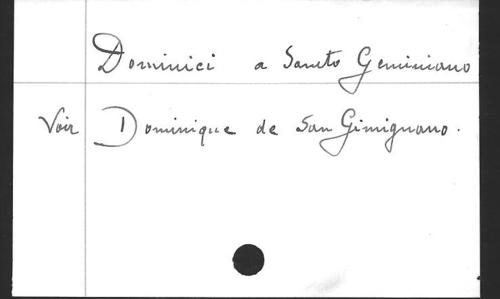 Dominici a Sancto Geminiano
Voir Dominique de San Gimignano.